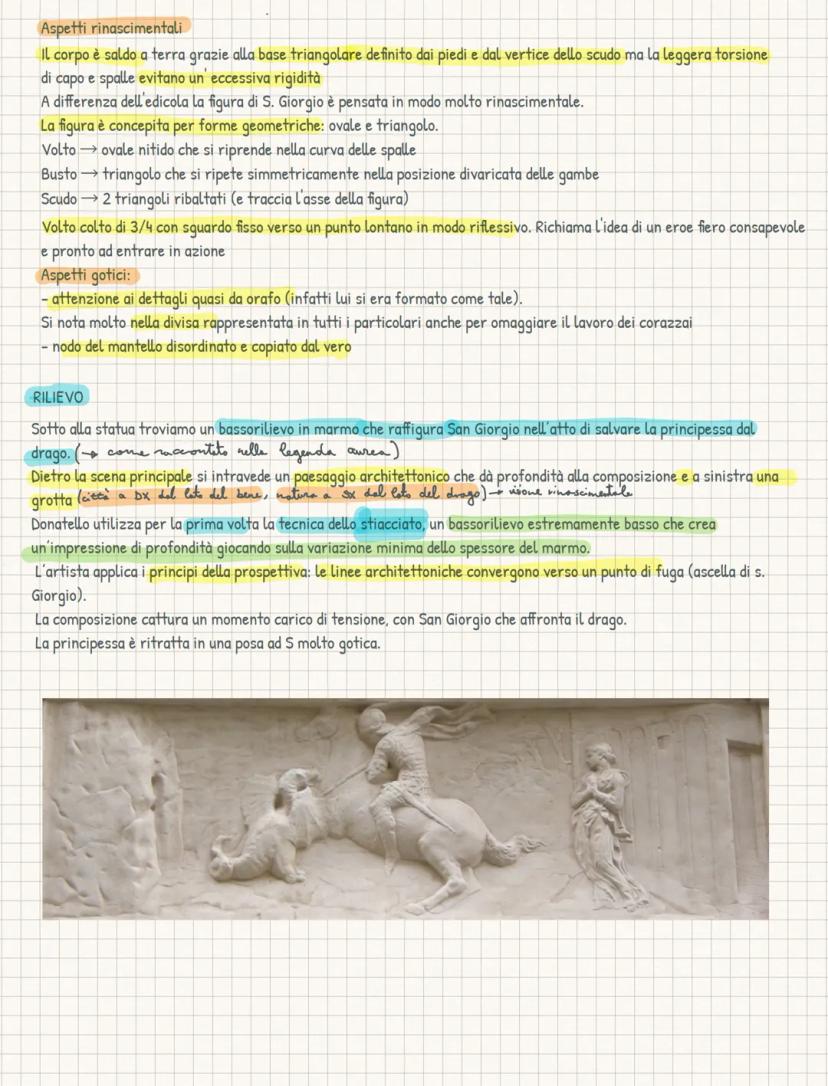 Aspetti rinascimentali
Il corpo è saldo a terra grazie alla base triangolare definito dai piedi e dal vertice dello scudo ma la leggera torsione
di capo e spalle evitano un' eccessiva rigidità
A differenza dell'edicola la figura di S. Giorgio è pensata in modo molto rinascimentale.
La figura è concepita per forme geometriche: ovale e triangolo.
Volto → ovale nitido che si riprende nella curva delle spalle
Busto → triangolo che si ripete simmetricamente nella posizione divaricata delle gambe
Scudo → 2 triangoli ribaltati (e traccia l'asse della figura)
Volto colto di 3/4 con sguardo fisso verso un punto lontano in modo riflessivo. Richiama l'idea di un eroe fiero consapevole
e pronto ad entrare in azione
Aspetti gotici:
- attenzione ai dettagli quasi da orafo (infatti lui si era formato come tale).
Si nota molto nella divisa rappresentata in tutti i particolari anche per omaggiare il lavoro dei corazzai
- nodo del mantello disordinato e copiato dal vero
RILIEVO
Sotto alla statua troviamo un bassorilievo in marmo che raffigura San Giorgio nell'atto di salvare la principessa dal
drago. (→ come raccontato nella legenda aurea)
Dietro la scena principale si intravede un paesaggio architettonico che dà profondità alla composizione e a sinistra una
grotta (città a DX dal lato del bene, natura a SX dal lato del drago) → visione rinascimentale
Donatello utilizza per la prima volta la tecnica dello stiacciato, un bassorilievo estremamente basso che crea
un'impressione di profondità giocando sulla variazione minima dello spessore del marmo.
L'artista applica i principi della prospettiva: le linee architettoniche convergono verso un punto di fuga (ascella di s.
Giorgio).
La composizione cattura un momento carico di tensione, con San Giorgio che affronta il drago.
La principessa è ritratta in una posa ad S molto gotica.